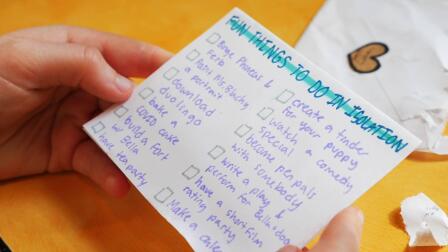 FUN THINGS TO DO IN ISOLATION
Binge Phineas &
Ferb
Paint
a portrait
download
duolingo
bake a
COVID cake
build a fort
w/ Bella
have
tea party
create a tinder
for your puppy
watch a comedy
special
become pen pals
with somebody
write a play &
perform for Bella &
have a short film
rating party
Make a